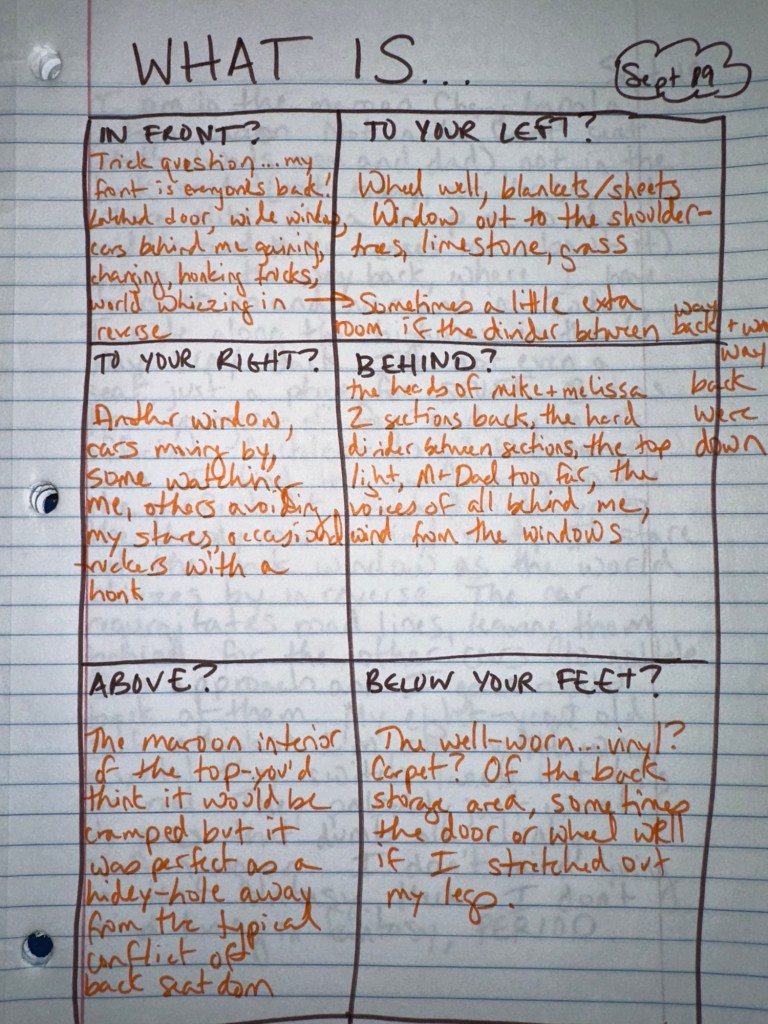 WHAT IS...
Sept 19
IN FRONT?
Trick question...my
front is everyone's back!
Latched door, wide window,
cars behind me gaining,
changing, honking trucks,
world whizzing in
reverse
TO YOUR LEFT?
Wheel well, blankets/sheets
Window out to the shoulder-
trees, limestone, grass
→ Sometimes a little exta
room if the divider between way back + way
way
back
were
down
TO YOUR RIGHT?
Another window,
cars moving by,
some watching
me, others avoiding
my stares, occasional
truckers with a
honk
BEHIND?
the heads of mike + melissa
2 sections back, the hard
divider between sections, the top
light, M+Dad too far, the
voices of all behind me,
wind from the windows
ABOVE?
The maroon interior
of the top-you'd
think it would be
cramped but it
was perfect as a
hidey-hole away
from the typical
conflict of
back seat dom
BELOW YOUR FEET?
The well-worn...vinyl?
Carpet? Of the back
storage area, sometimes
the door or wheel well
if I stretched out
my legs.